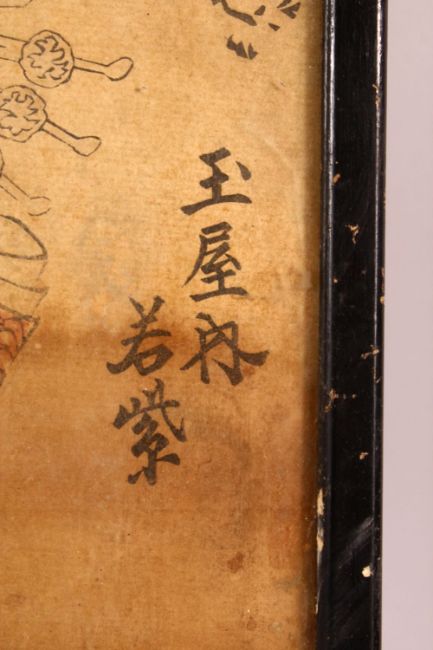 玉屋内
若紫